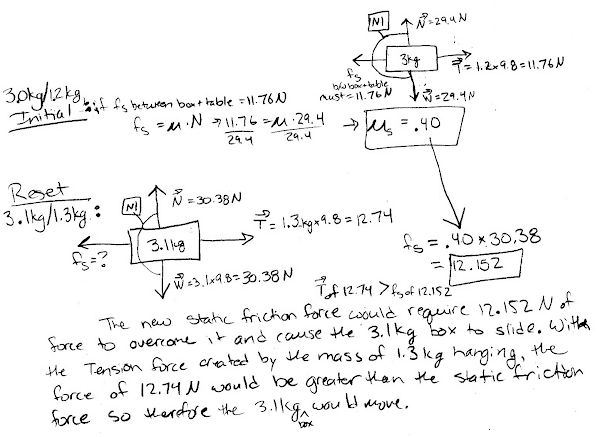 N1
N⃗=29.4N
3kg
T⃗=1.2×9.8=11.76N
fs
b/w box+table
must=11.76N
W⃗=29.4N
3.0kg/1.2kg
Initial: if fs between box+table=11.76N
fs = μ·N → 11.76 = μ·29.4
29.4 29.4
→ μs = .40
Reset
3.1kg/1.3kg:
N1
N⃗=30.38N
3.1kg
T⃗=1.3kg×9.8=12.74
fs=?
W⃗=3.1×9.8=30.38N
fs = .40×30.38
= 12.152
T⃗ of 12.74 > fs of 12.152
The new static friction force would require 12.152 N of
force to overcome it and cause the 3.1kg box to slide. With
the Tension force created by the mass of 1.3kg hanging, the
force of 12.74 N would be greater than the static friction
force so therefore the 3.1kg box would move.